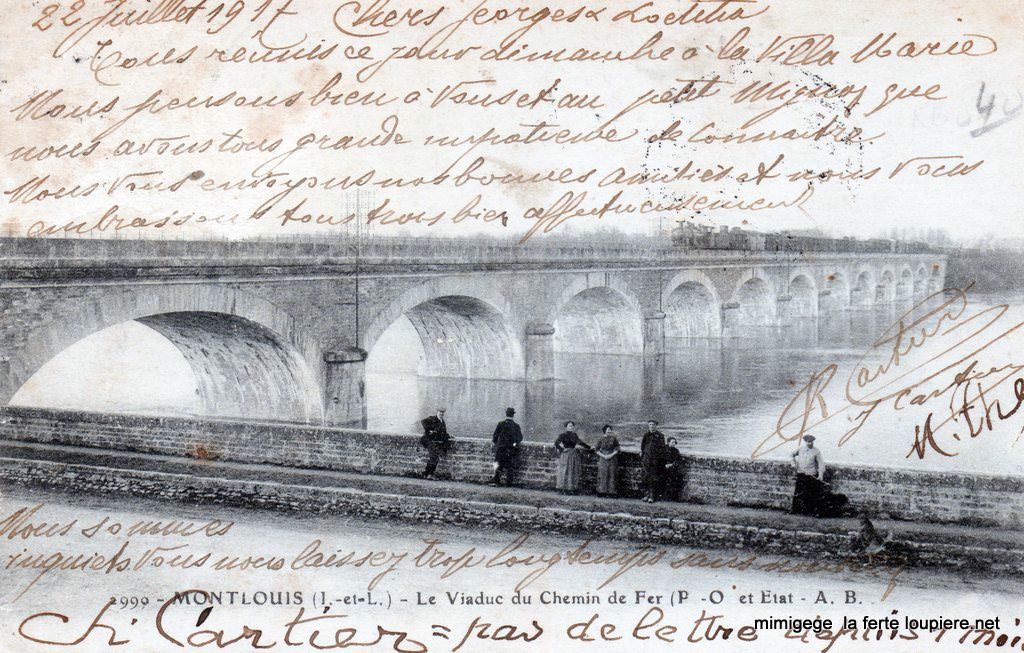 22 Juillet 1917 Chers Georges & Loetitia
Tous reunis ce jour dimanche à la Villa Marie
Nous pensons bien à Vous et au petit Mignon que
nous avons tous grande impatience de Connaitre
Nous Vous envoyons nos bonnes amitiés et nous Vous
embrassons tous trois bien affectueusement
40
R Cartier
J Cartier
M. The
Nous sommes
inquiets Vous nous laissez trop longtemps sans
2999 - MONTLOUIS (I.-et-L.) - Le Viaduc du Chemin de Fer (P -O et Etat - A. B.
Ch Cartier = pas de lettre depuis 1 mois
mimigege la ferte loupiere.net